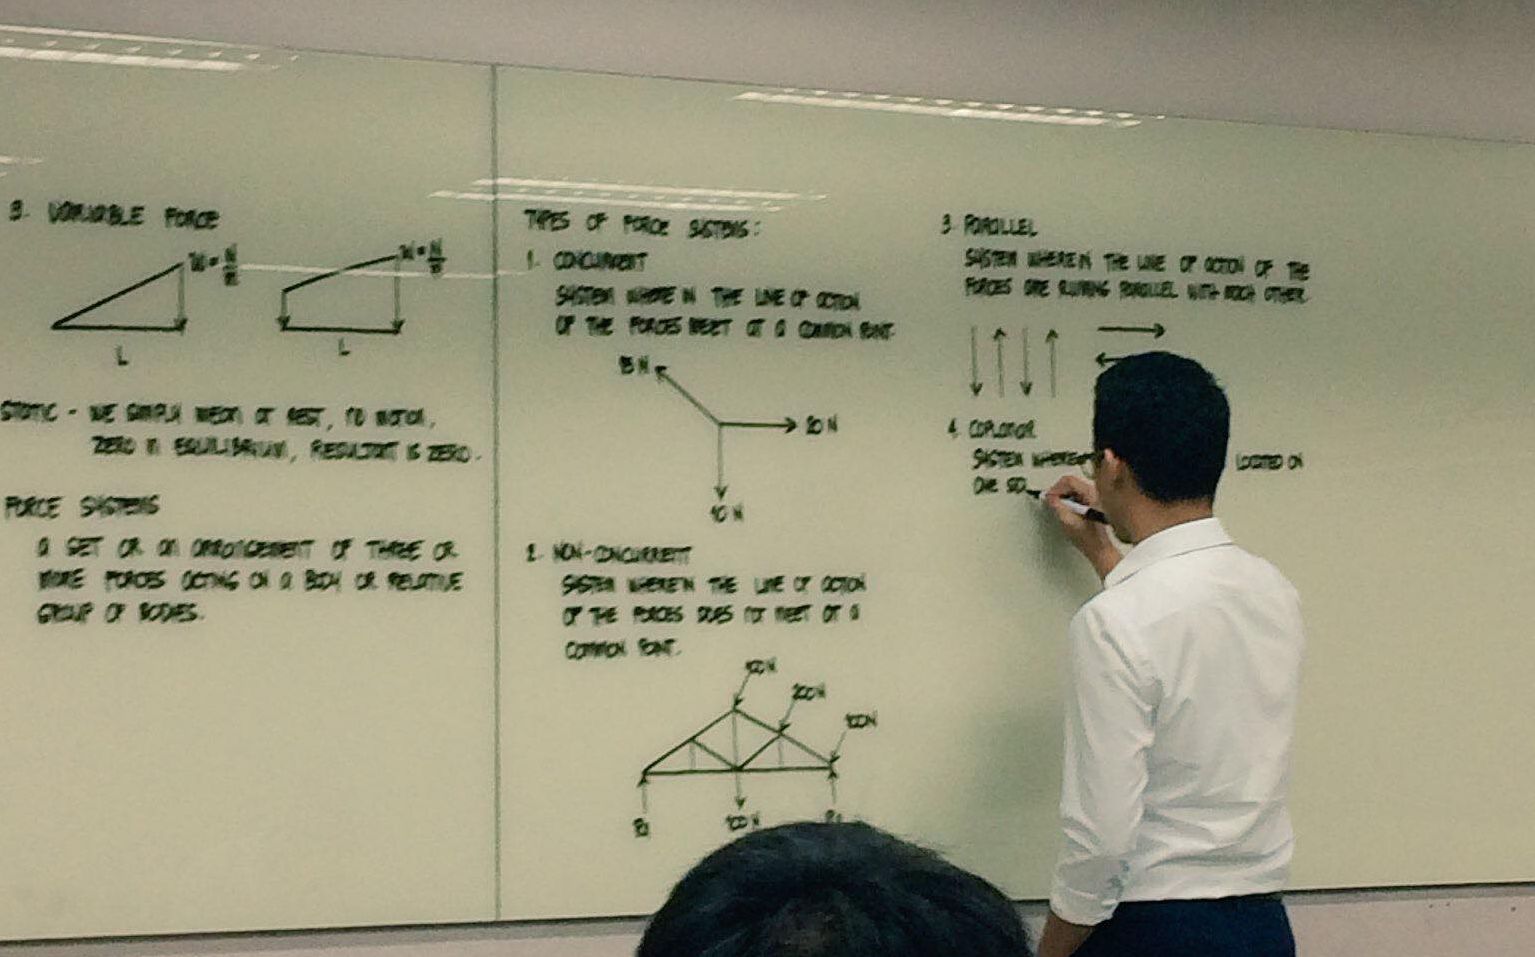 3. VARIABLE FORCE
W = N/m
W = N/m
L
L
STATIC - WE SIMPLY MEAN AT REST, NO MOTION,
ZERO IN EQUILIBRIUM, RESULTANT IS ZERO.
FORCE SYSTEMS
A SET OR AN ARRANGEMENT OF THREE OR
MORE FORCES ACTING ON A BODY OR RELATIVE
GROUP OF BODIES.
TYPES OF FORCE SYSTEMS:
1. CONCURRENT
SYSTEM WHERE IN THE LINE OF ACTION
OF THE FORCES MEET AT A COMMON POINT.
N
20 N
10 N
2. NON-CONCURRENT
SYSTEM WHEREIN THE LINE OF ACTION
OF THE FORCES DOES NOT MEET AT A
COMMON POINT.
100 N
200 N
100 N
100 N
3. PARALLEL
SYSTEM WHEREIN THE LINE OF ACTION OF THE
FORCES ARE RUNING PARALLEL WITH EACH OTHER.
4. COPLANAR
SYSTEM WHERE LOCATED ON
ONE